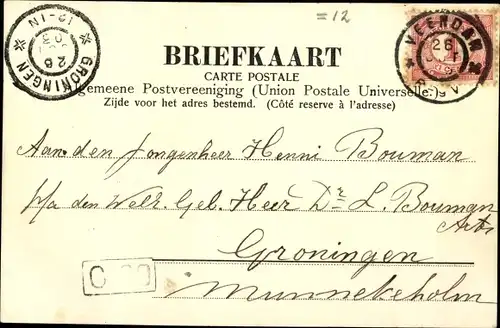 =12
VEENDAM
26
GRONINGEN
26
12-1N
BRIEFKAART
CARTE POSTALE
Algemeene Postvereeniging (Union Postale Universelle.)
Zijde voor het adres bestemd. (Côté reserve à l'adresse)
Aan den Jongenheer Henni Bouman
p/a den Welr. Geb. Heer Dr L. Bouman
Arts
Groningen
Munnekeholm